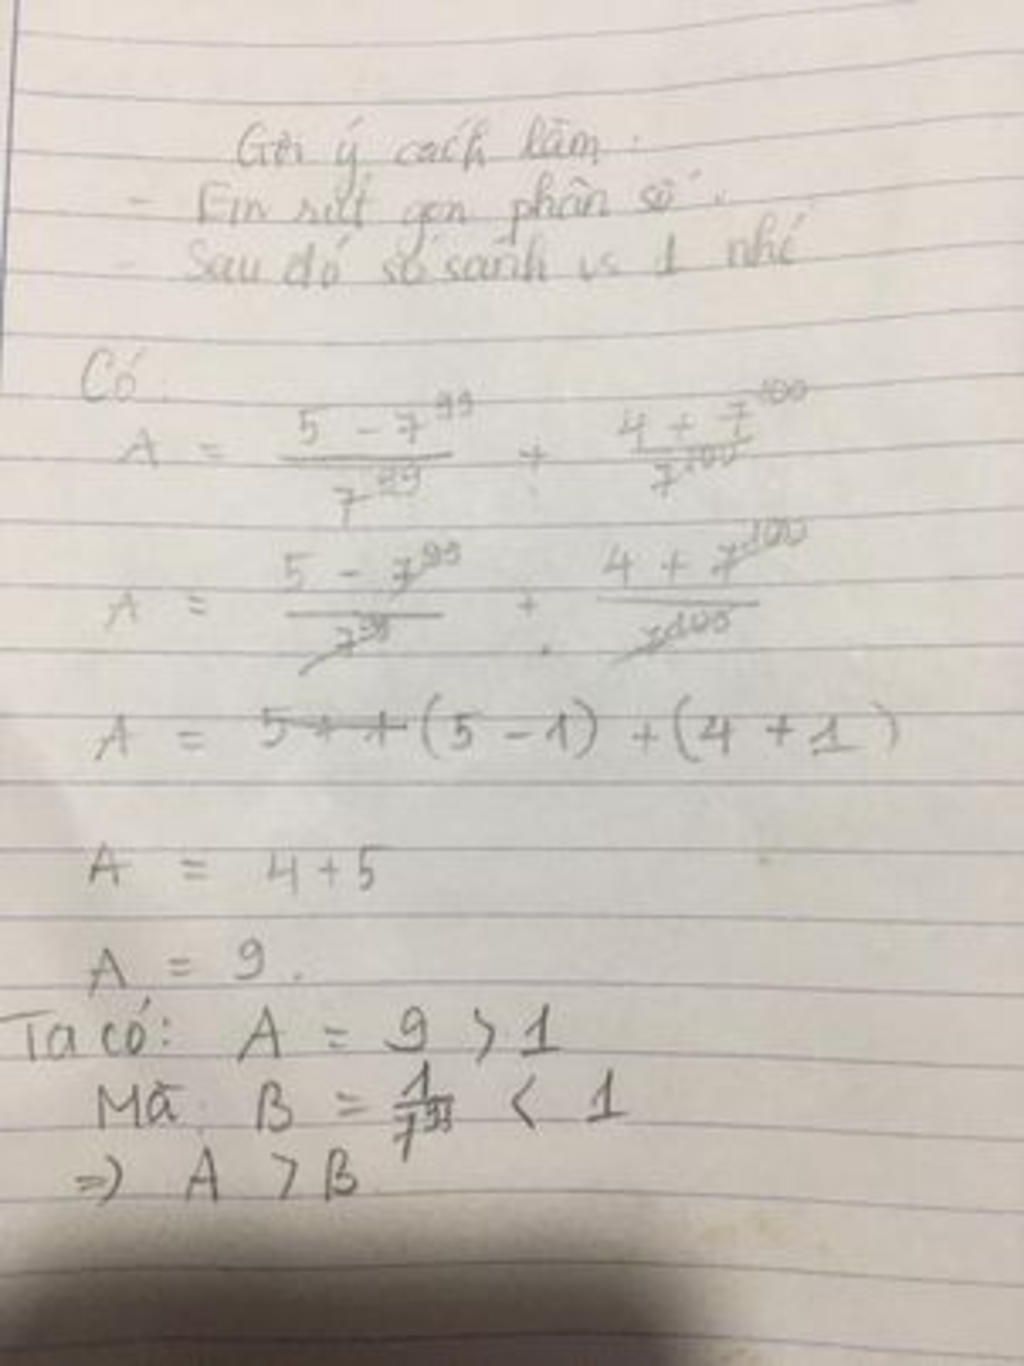 Gợi ý cách làm:
- Em rút gọn phân số.
- Sau đó so sánh vs 1 nhé
Có
A = (5 - 7^99)/(7^99) + (4 + 7^100)/(7^100)
A = (5 - 7^99)/(7^99) + (4 + 7^100)/(7^100)
A = 5 + 1 (5 - 1) + (4 + 1)
A = 4 + 5
A = 9.
Ta có: A = 9 > 1
Mà B = 1/(7^99) < 1
=> A > B